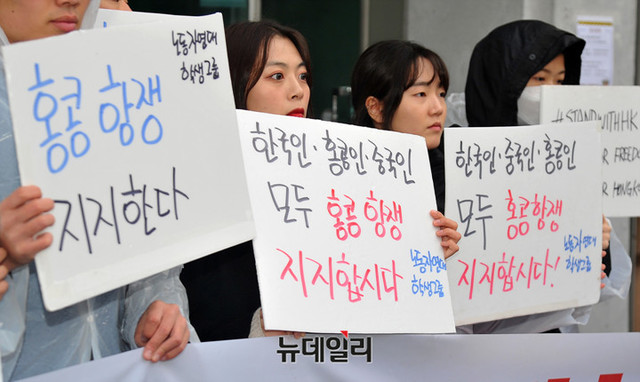 노동자연대
학생그룹
홍콩 항쟁
지지한다
한국인·홍콩인·중국인
모두 홍콩 항쟁
지지합시다
노동자연대
학생그룹
한국인·중국인·홍콩인
모두 홍콩항쟁
지지합시다!
노동자연대
학생그룹
#STANDWITHHK
FOR FREEDO
OR HONGKO
뉴데일리